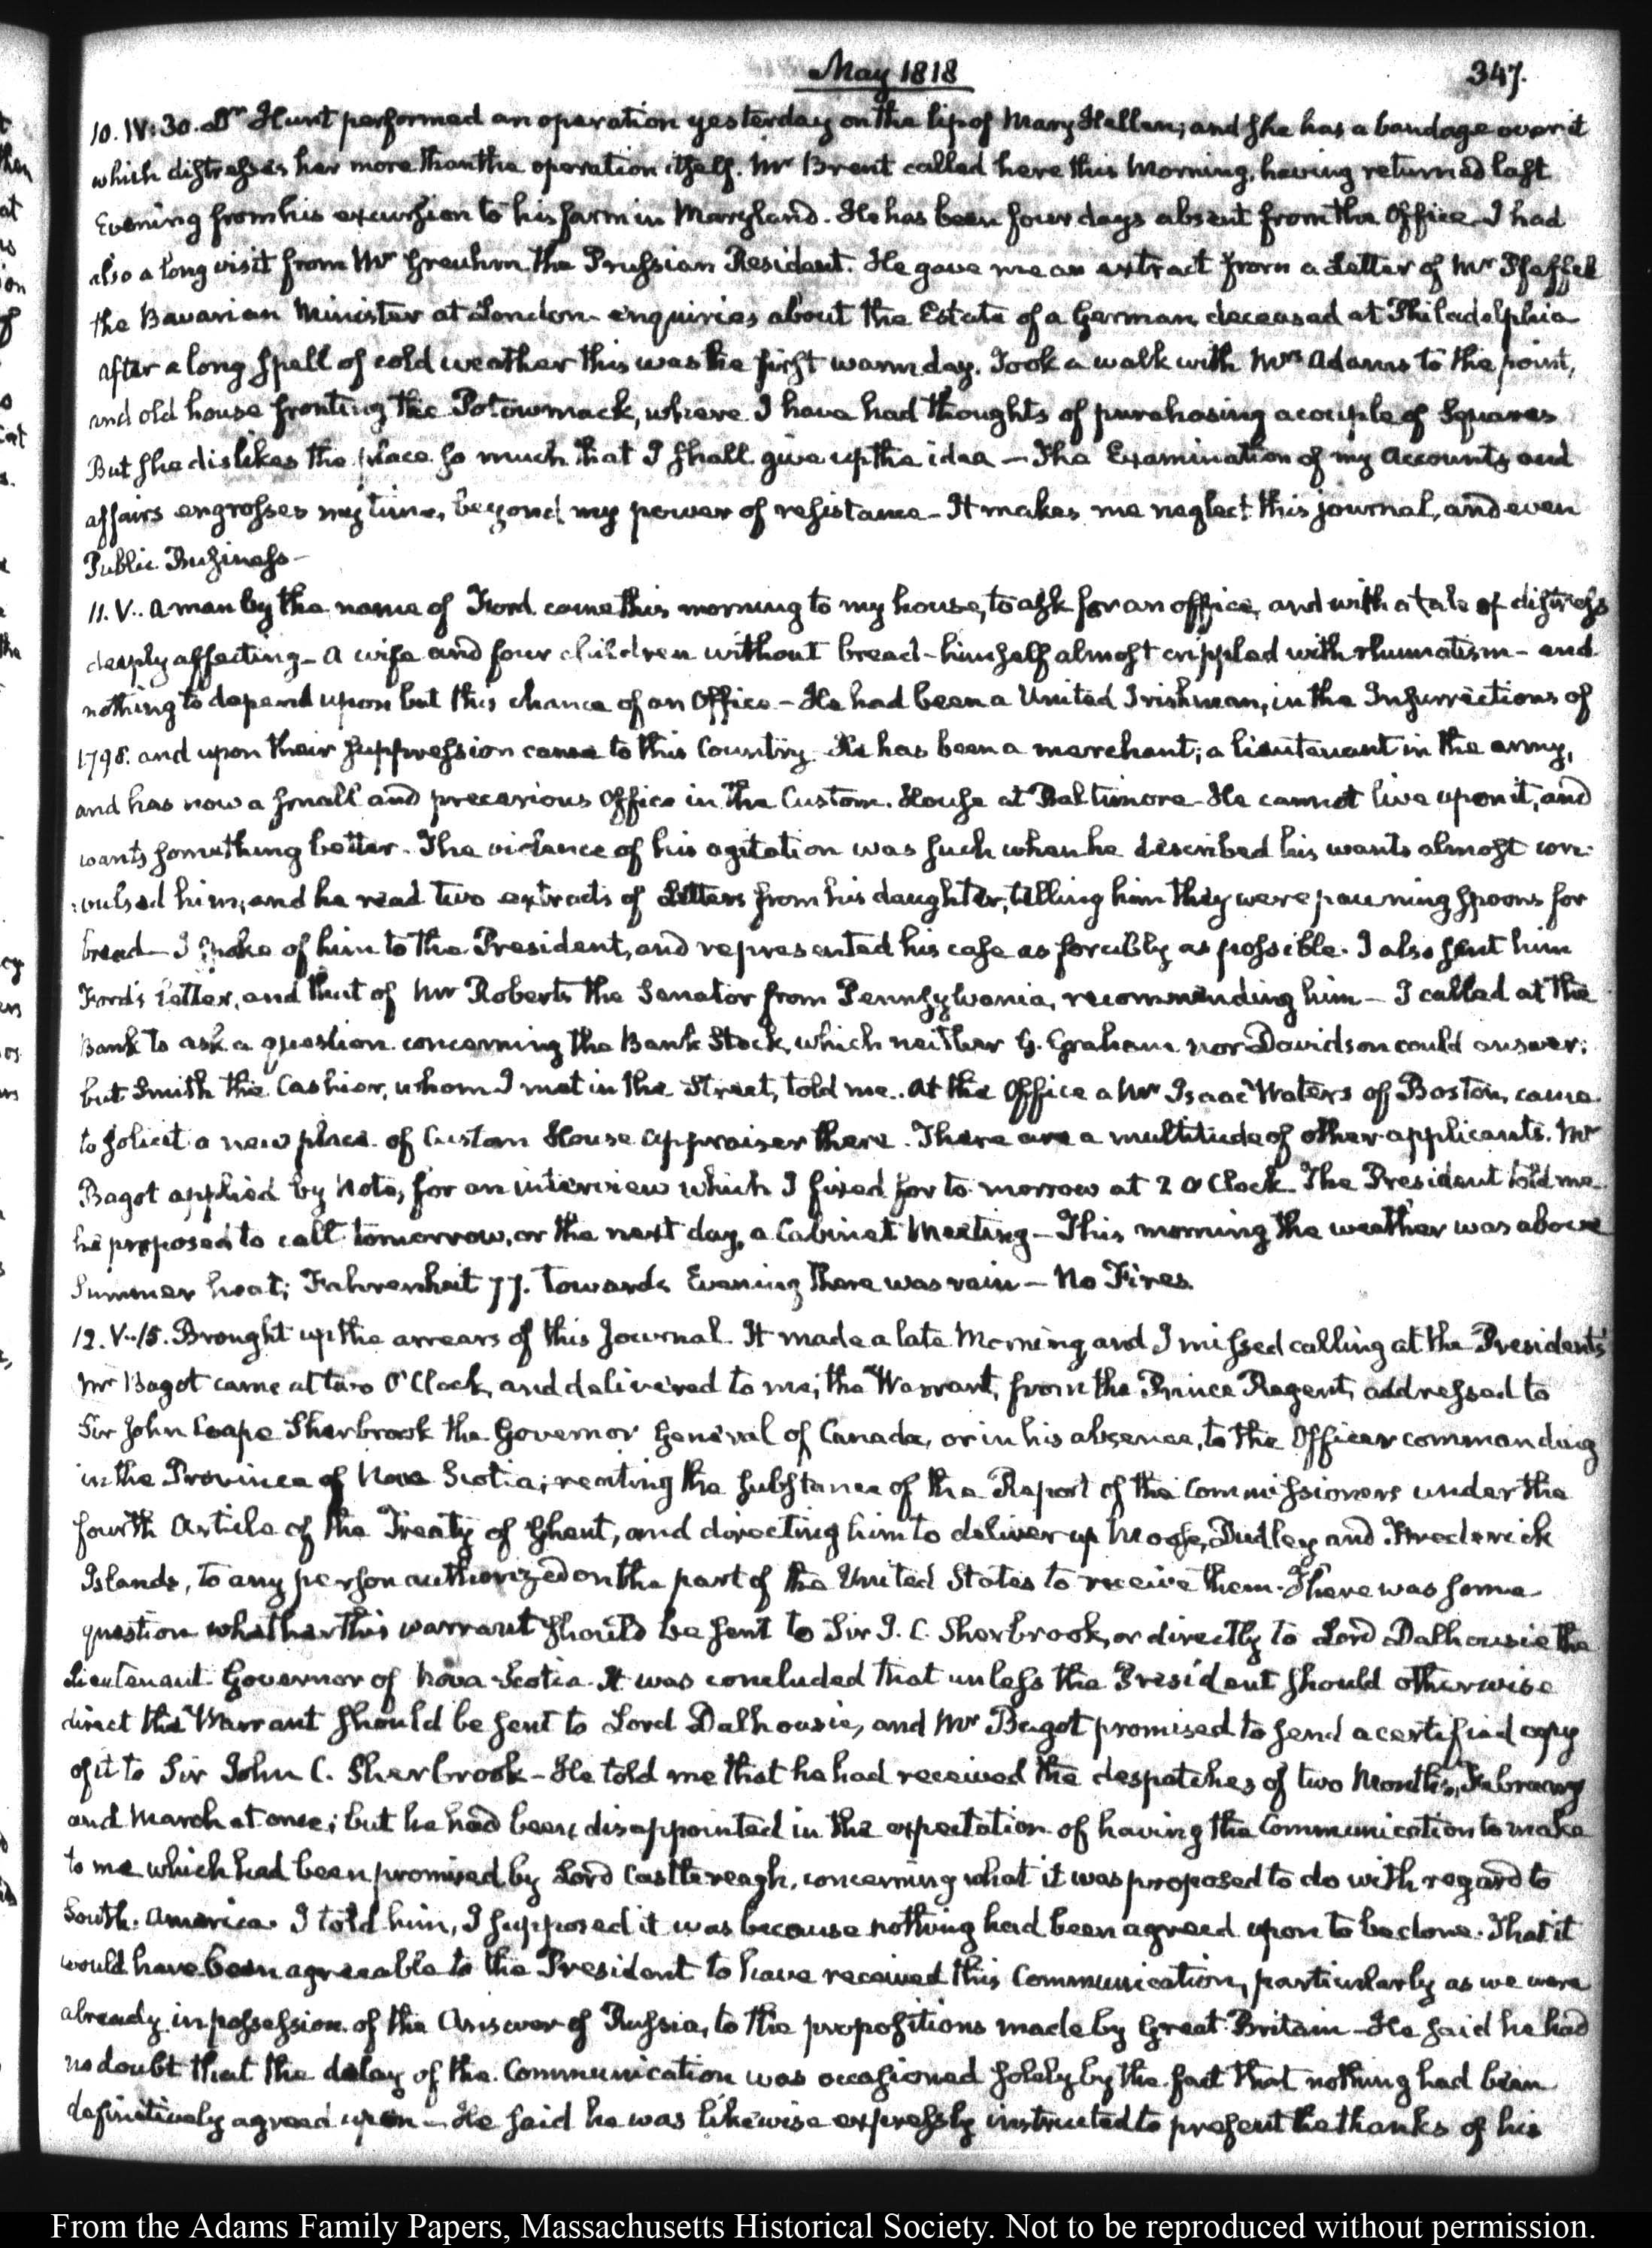 May 1818
347.
10. IV:30. Dr Hunt performed an operation yesterday on the lip of Mary Hellen; and she has a bandage over it
which distresses her more than the operation itself. Mr Brent called here this Morning, having returned last
Evening from his excursion to his farm in Maryland. He has been four days absent from the Office I had
also a long visit from Mr Greuhm the Prussian Resident. He gave me an extract from a Letter of Mr Pfeffel
the Bavarian Minister at London enquiries about the Estate of a German deceased at Philadelphia
After a long spell of cold weather this was the first warm day. Took a walk with Mrs Adams to the point,
and old house fronting the Potowmack, where I have had thoughts of purchasing a couple of Squares
But she dislikes the place so much that I shall give up the idea — The Examination of my Accounts and
affairs engrosses my time, beyond my power of resistance — It makes me neglect this journal, and even
Public Business —
11. V.. A man by the name of Ford came this morning to my house, to ask for an office, and with a tale of distress
deeply affecting — A wife and four children without bread — himself almost crippled with rhumatism — and
nothing to depend upon but this chance of an Office — He had been a United Irishman, in the Insurrections of
1798. and upon their suppression came to this Country He has been a merchant; a lieutenant in the army,
and has now a small and precarious Office in the Custom House at Baltimore — He cannot live upon it, and
wants something better. The violence of his agitation was such when he described his wants almost con-
:vulsed him; and he read two extracts of Letters from his daughter, telling him they were pawning spoons for
bread — I spoke of him to the President, and represented his case as forcibly as possible. I also sent him
Ford's Letter, and that of Mr Roberts the Senator from Pennsylvania, recommending him — I called at the
Bank to ask a question concerning the Bank Stock, which neither G. Graham nor Davidson could answer;
but Smith the Cashier, whom I met in the Street, told me.. At the Office a Mr Isaac Waters of Boston, came
to solicit a new place of Custom House Appraiser there. There are a multitude of other applicants. Mr
Bagot applied by Note, for an interview which I fixed for to-morrow at 2 O'Clock The President told me
he proposed to call tomorrow, or the next day, a Cabinet Meeting — This morning the weather was above
Summer heat; Fahrenheit 77. towards Evening there was rain — No Fires.
12. V..15. Brought up the arrears of this Journal. It made a late Morning and I missed calling at the Presidents'
Mr Bagot came at two O'Clock, and delivered to me; the Warrant, from the Prince Regent, addressed to
Sir John Coape Sherbrook the Governor General of Canada, or in his absence, to the Officer commanding
in the Province of Nova Scotia; reciting the substance of the Report of the Commissioners under the
fourth Article of the Treaty of Ghent, and directing him to deliver up Moose, Dudley and Frederick
Islands, to any person authorized on the part of the United States to receive them. There was some
question whether this warrant should be sent to Sir J. C. Sherbrook, or directly to Lord Dalhousie the
Lieutenant Governor of Nova-Scotia. It was concluded that unless the President should otherwise
direct the Warrant should be sent to Lord Dalhousie, and Mr Bagot promised to send a certified copy
of it to Sir John C. Sherbrook — He told me that he had received the despatches of two Months, February
and March at once; but he had been disappointed in the expectation of having the Communication to make
to me which had been promised by Lord Castlereagh, concerning what it was proposed to do with regard to
South America. I told him, I supposed it was because nothing had been agreed upon to be done. That it
would have been agreeable to the President to have received this Communication, particularly as we were
already in possession of the Answer of Russia, to the propositions made by Great-Britain — He said he had
no doubt that the delay of the Communication was occasioned solely by the fact that nothing had been
definitively agreed upon — He said he was likewise expressly instructed to present the thanks of his
From the Adams Family Papers, Massachusetts Historical Society. Not to be reproduced without permission.